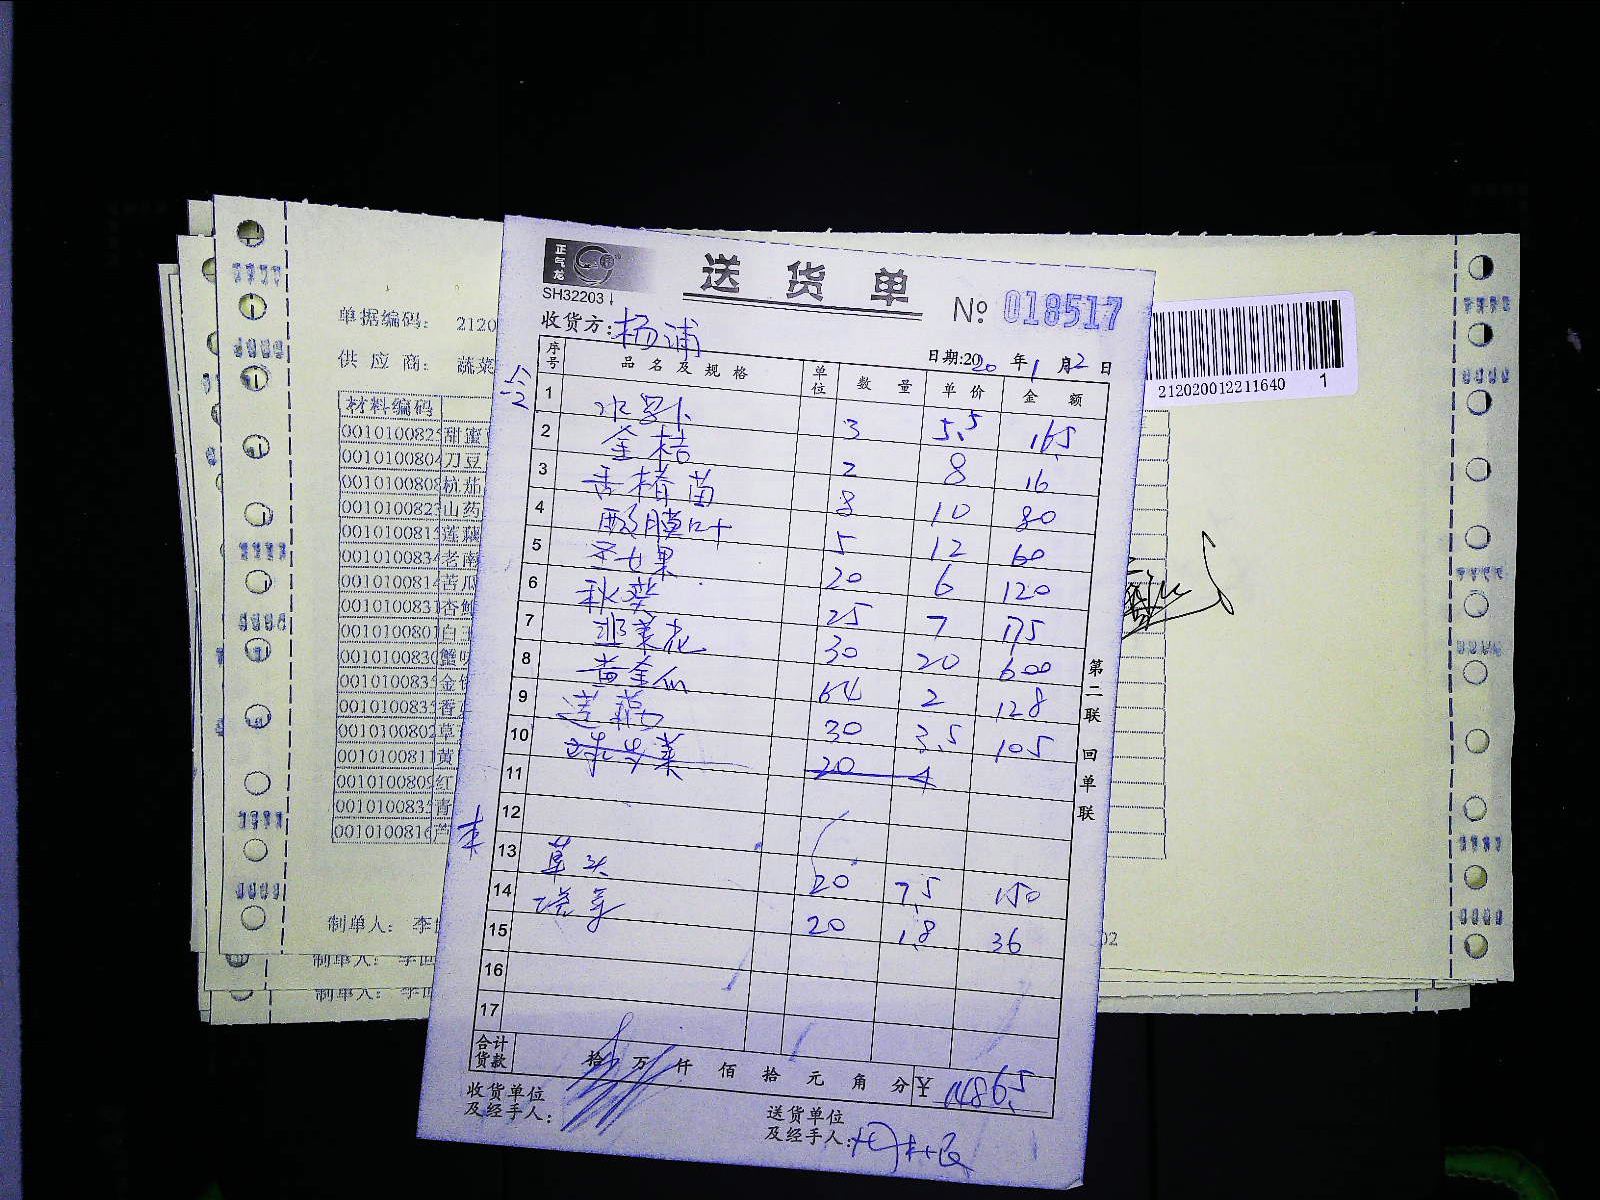 正气龙
送货单
SH32203
№ 018517
收货方: 杨浦
日期:2020 年 1 月 2 日
序号 品名及规格 单位 数量 单价 金额
1 水萝卜 3 5.5 16.5
2 金桔 2 8 16
3 香椿苗 8 10 80
4 酸膜叶 5 12 60
5 圣女果 20 6 120
6 秋葵 25 7 175
7 韭菜花 30 20 600
8 黄金瓜 64 2 128
9 莲藕 30 3.5 105
10 20 4
11
12
13 草头 20 7.5 150
14 20 1.8 36
15
16
17
合计货款 拾 万 仟 佰 拾 元 角 分 ¥ 1486.5
收货单位及经手人:
送货单位及经手人:
第二联 回单联
单据编码: 2120
供应商: 蔬菜
材料编码
001010082 甜蜜
0010100804 刀豆
0010100808 杭茄
001010082 山药
001010081 莲藕
001010083 老南
001010081 苦瓜
001010083 杏鲍
0010100801 白玉
001010083 蟹味
001010083 金
001010083 香
001010080 草
001010081 黄
001010080 红
001010083 青
001010081 芦
制单人: 李
制单人: 李
制单人: 李
02
212020012211640 1